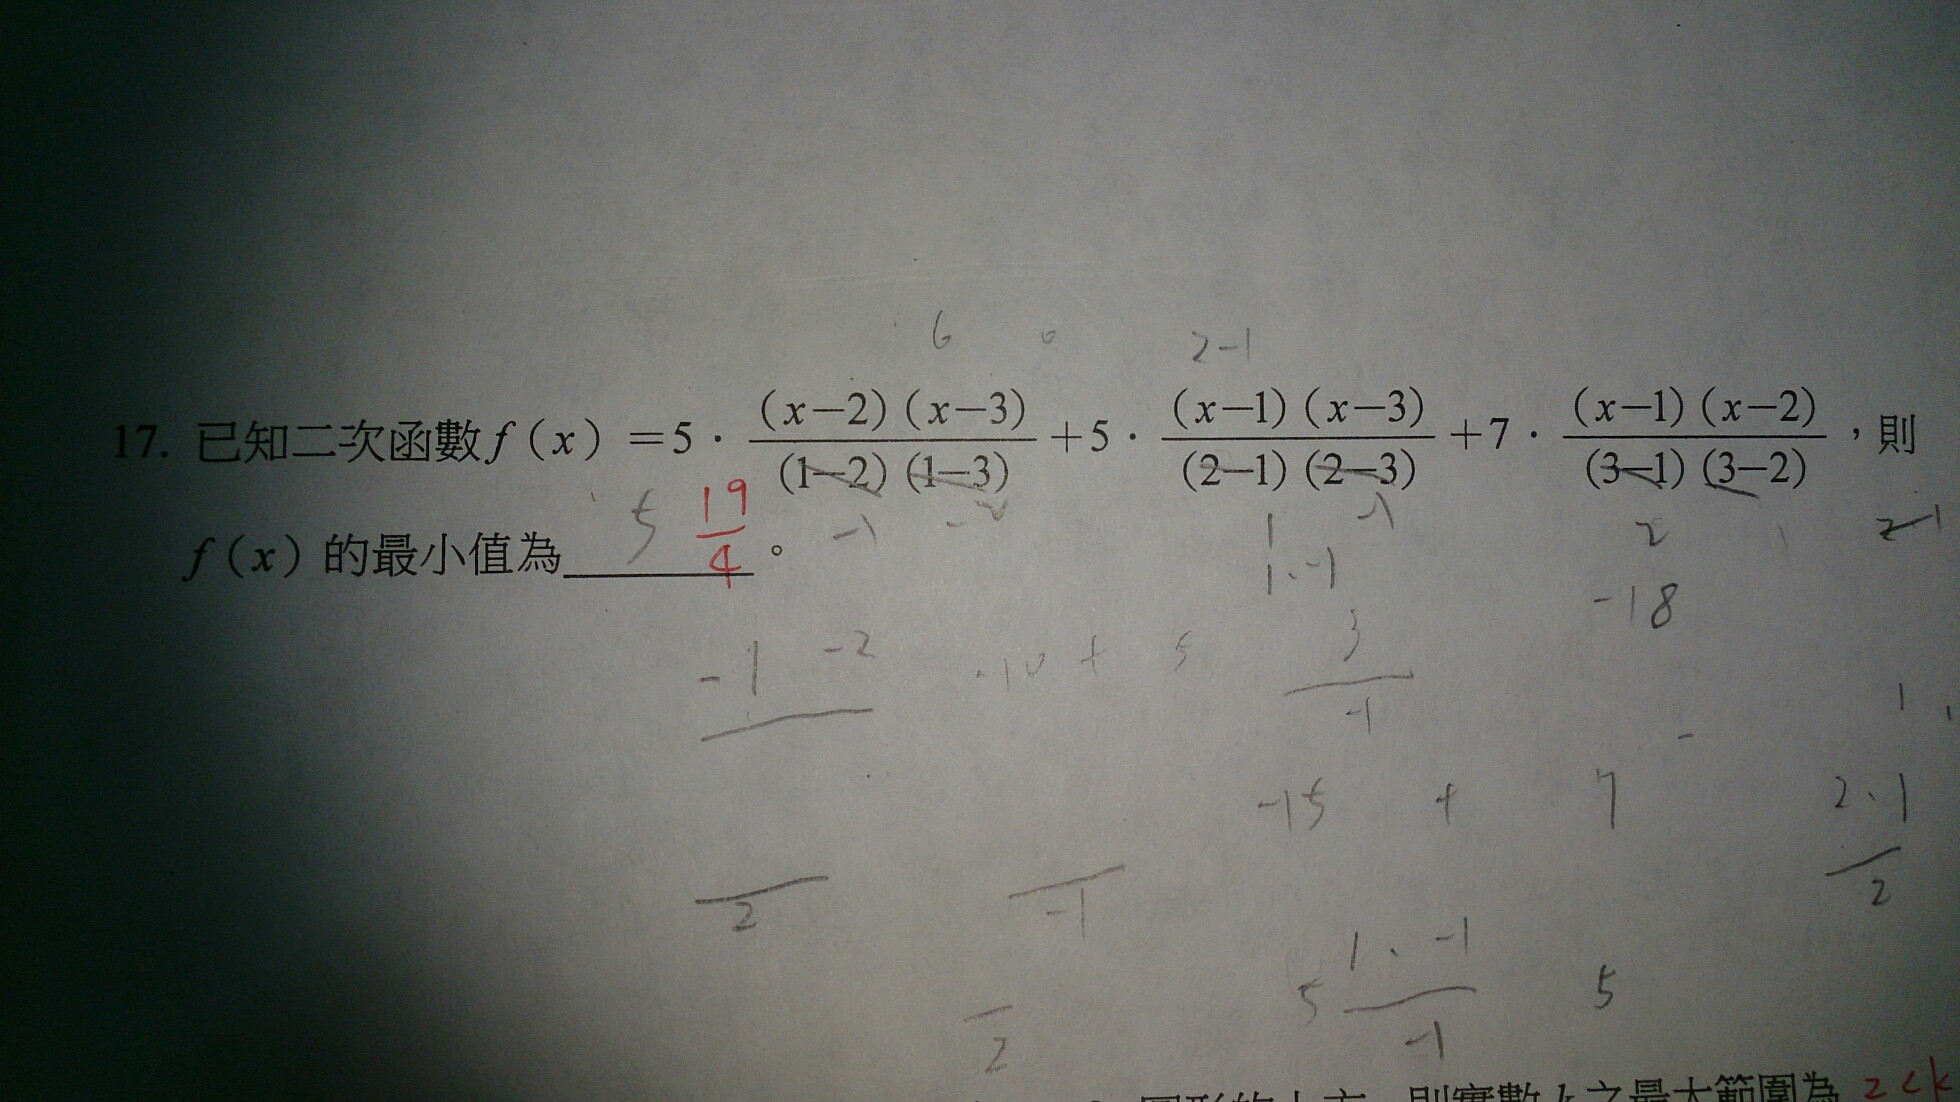 6 0 2-1
17. 已知二次函數f(x)=5·\frac{(x-2)(x-3)}{(1-2)(1-3)}+5·\frac{(x-1)(x-3)}{(2-1)(2-3)}+7·\frac{(x-1)(x-2)}{(3-1)(3-2)},則
-1 -2 1 -1 2 2-1
f(x)的最小值為 5 \frac{19}{4} 。
1·-1 -18
-1 -2 -10 + 5 \frac{3}{-1}
-15 + 7 \frac{2·1}{2}
2 -1
5 \frac{1·-1}{-1} 5
2
則實數k之最大範圍為 2<k